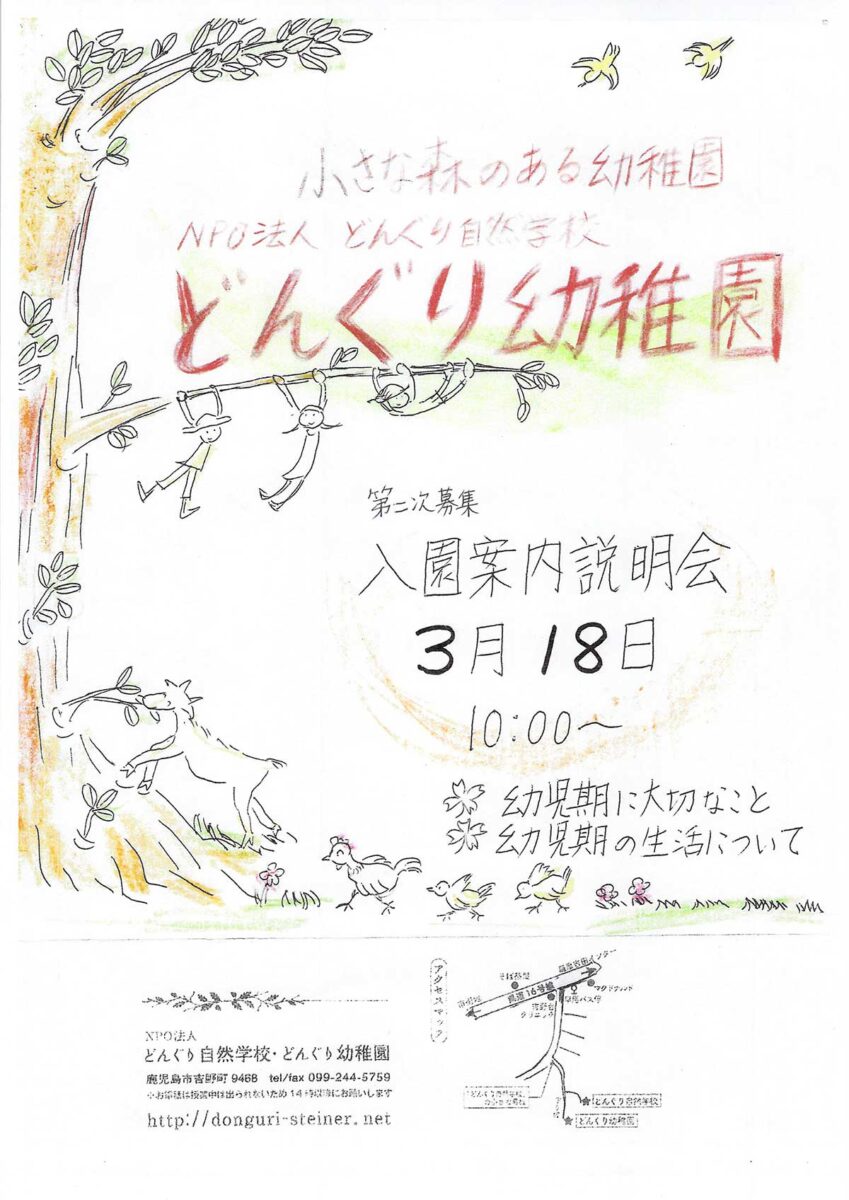 小さな森のある幼稚園
NPO法人 どんぐり自然学校
どんぐり幼稚園
第二次募集
入園案内説明会
3月18日
10:00〜
幼児期に大切なこと
幼児期の生活について
NPO法人
どんぐり自然学校・どんぐり幼稚園
鹿児島市吉野町9468 tel/fax 099-244-5759
※お電話は授業中は出られないため14時以降にお願いします
http://donguri-steiner.net
アクセスマップ
県道16号線
マクドナルド
クリニック
どんぐり自然学校
どんぐり幼稚園